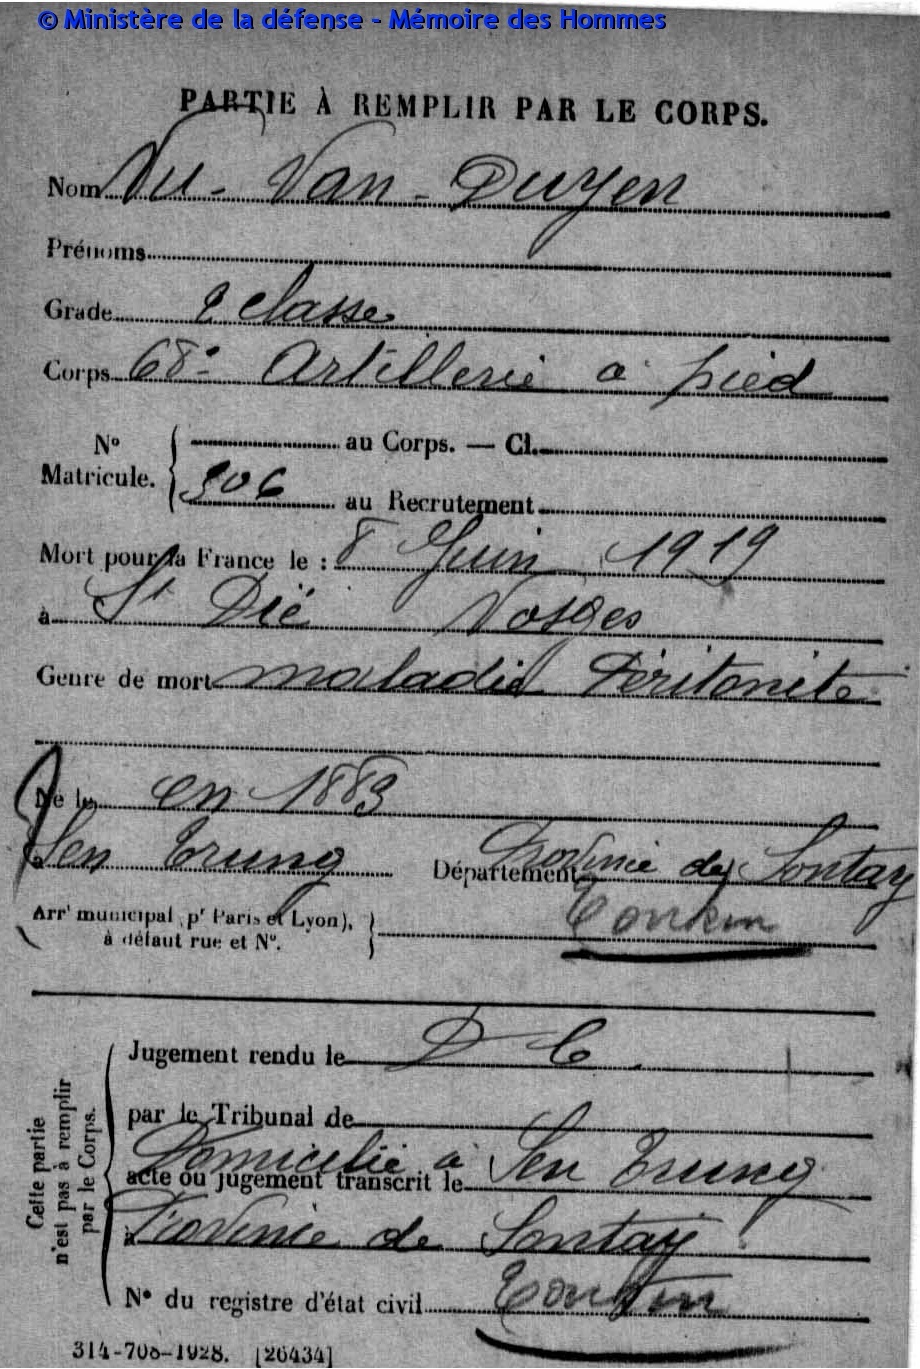 © Ministère de la défense - Mémoire des Hommes
PARTIE À REMPLIR PAR LE CORPS.
Nom Vu - Van - Duyen
Prénoms
Grade 2 classe
Corps 68e Artillerie a pied
N° Matricule. { au Corps. — Cl.
906 au Recrutement
Mort pour la France le : 8 Juin 1919
à St Dié Vosges
Genre de mort maladie Péritonite
Né le en 1883
à Sen Trung Département Province de Sontay
Arrt municipal (pr Paris et Lyon), à défaut rue et N°. } Tonkin
Cette partie n'est pas à remplir par le Corps.
Jugement rendu le D C
par le Tribunal de
Domicilié a Sen Trung
acte ou jugement transcrit le
à Province de Sontay
N° du registre d'état civil Tonkin
314-708-1928. [26434]